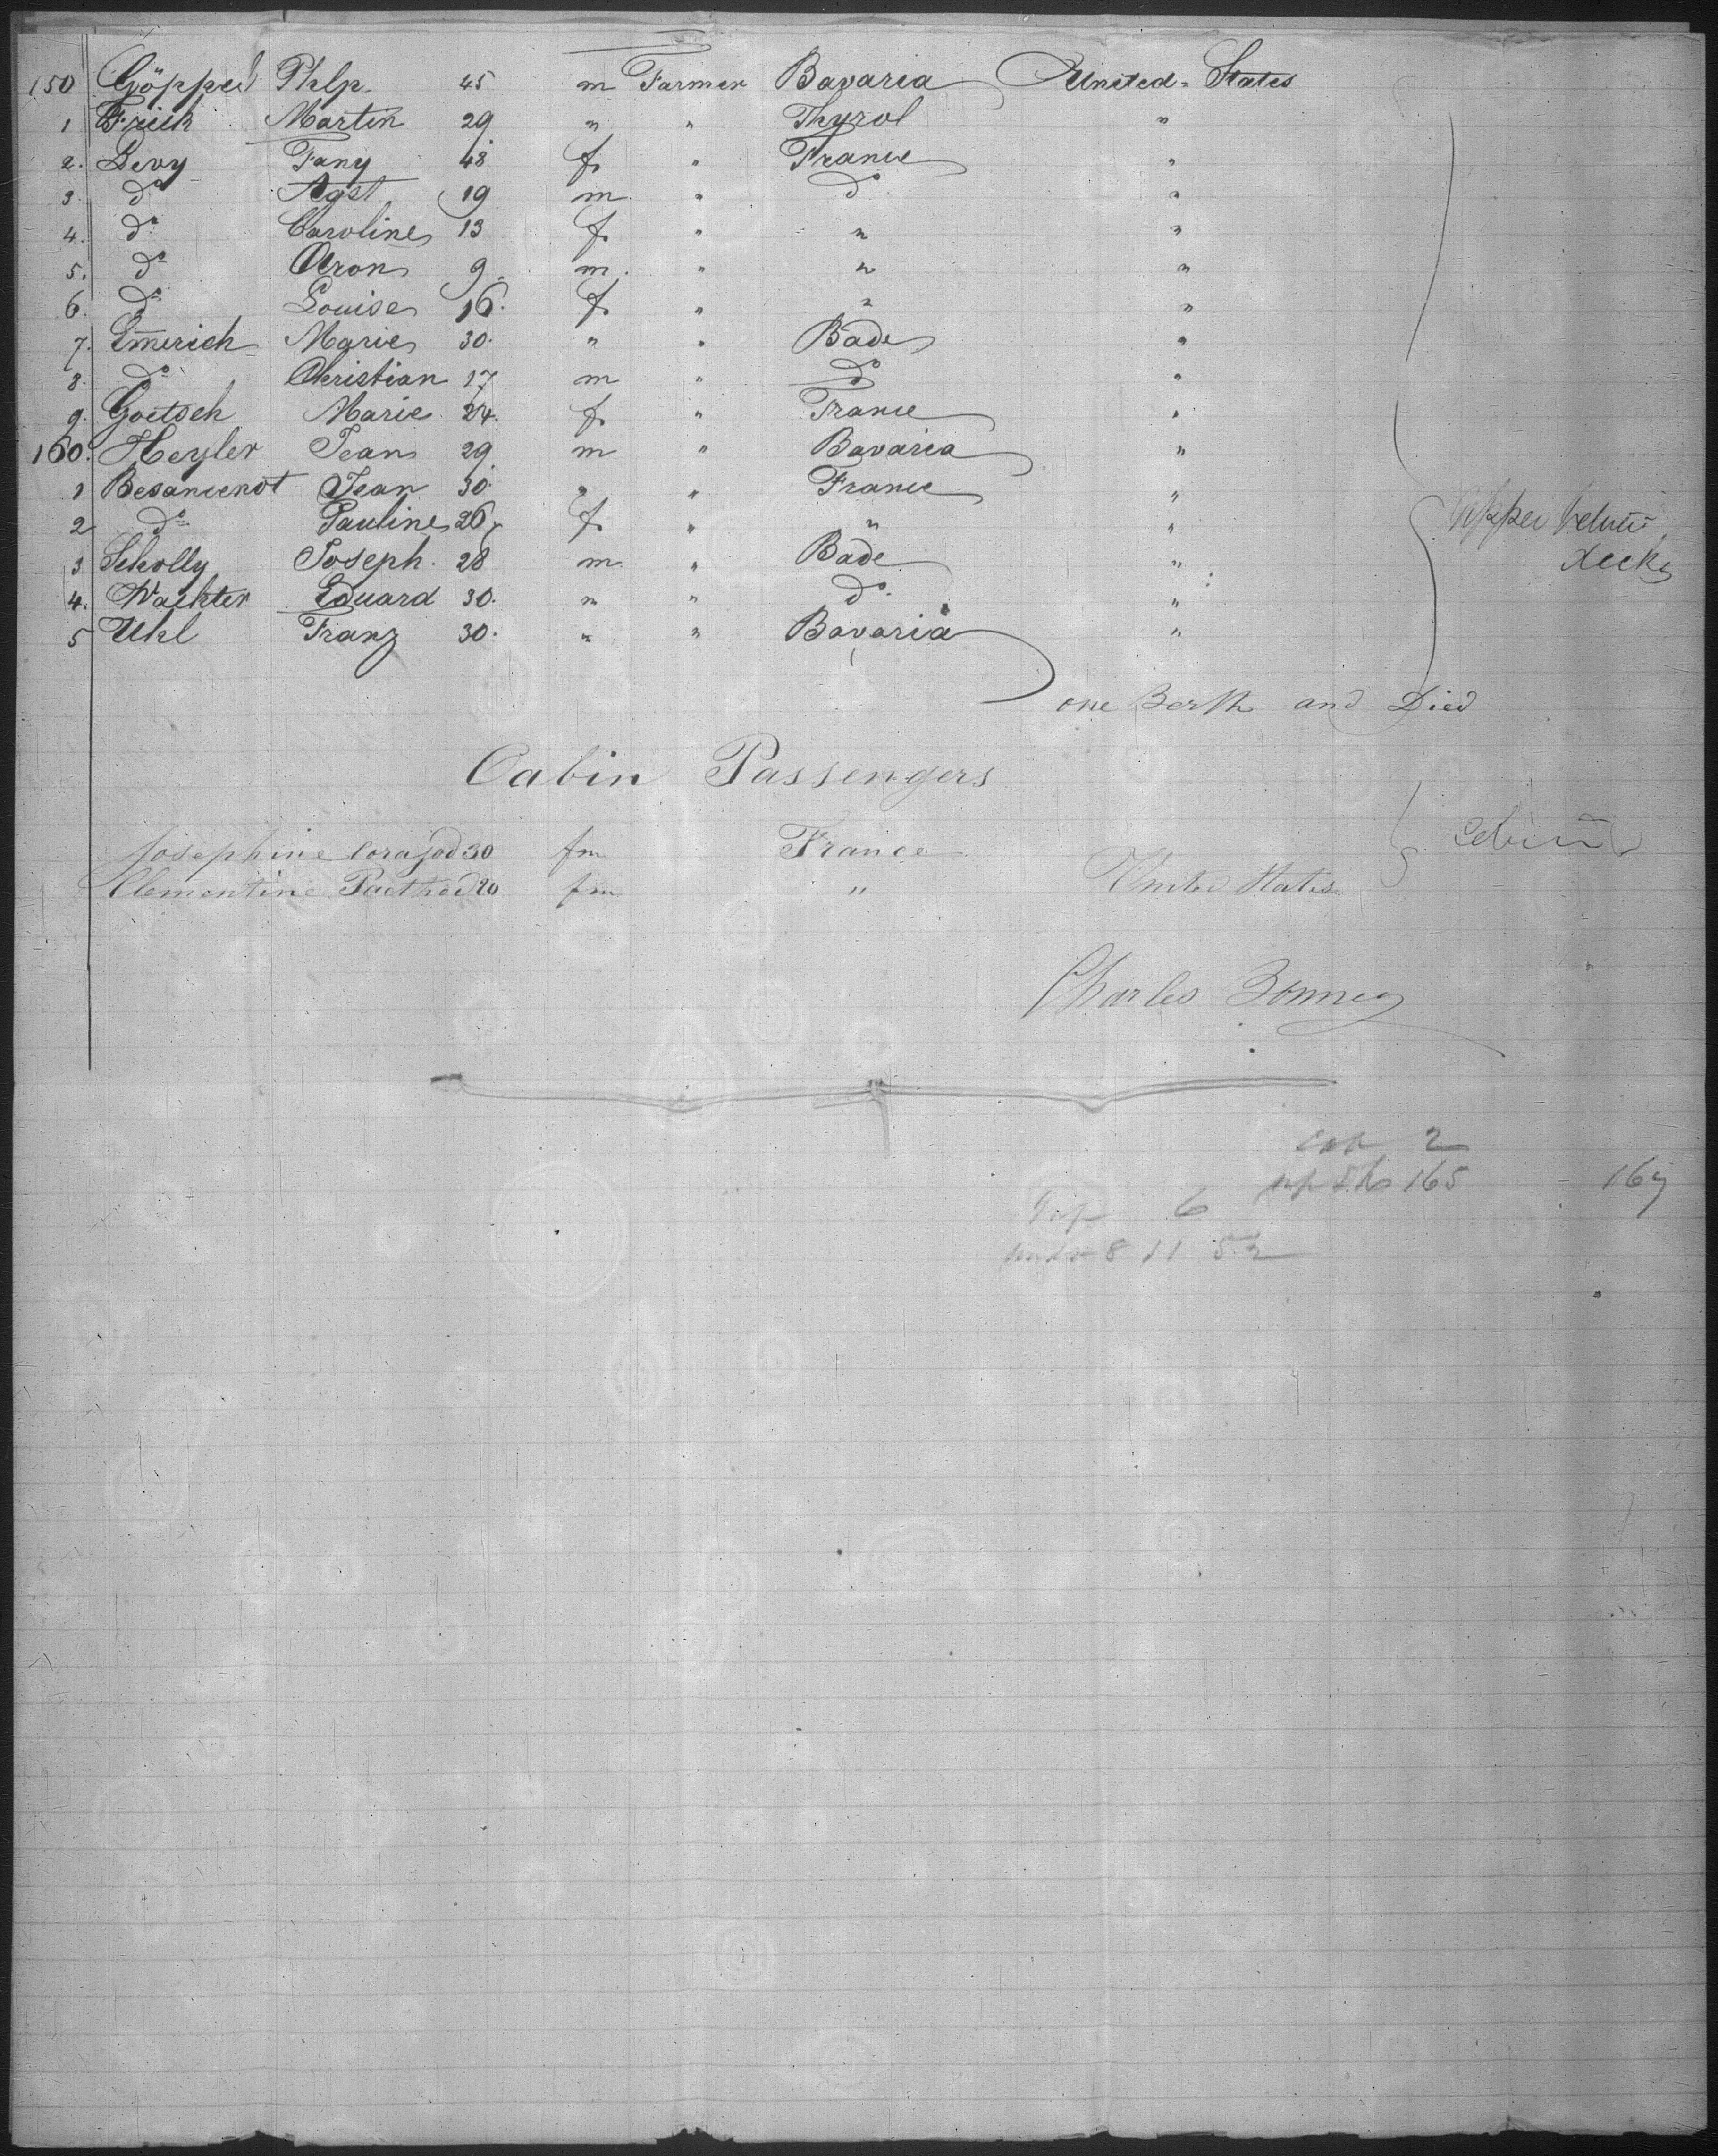 150 Göppel Phlp. 45 m Farmer Bavaria United-States
1 Frick Martin 29 " " Thyrol "
2. Levy Fany 48 f. " France "
3. do Agst 19 m " do "
4. do Caroline 13 f. " " "
5. do Aron 9. m. " " "
6. do Louise 16. f. " " "
7. Emerich Marie 30. " " Bade "
8. do Christian 17 m " do "
9. Goetsch Marie 24. f. " France "
160. Heyler Jean 29 m " Bavaria "
1 Besancenot Jean 30. " " France "
2 do Pauline 26 f. " " "
3 Scholly Joseph. 28 m " Bade "
4. Wachter Eduard 30. " " do. "
5 Uhl Franz 30. " " Bavaria "
Upper between
decks
one Berth and Died
Cabin Passengers
Josephine 30 fm France
Clementine 20 fm " United States
Charles Bonney
cab 2
165 167
6
8 11 52